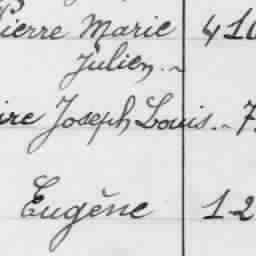 Pierre Marie 410
Julien.~
ire Joseph Louis.~ 7
Eugène 12